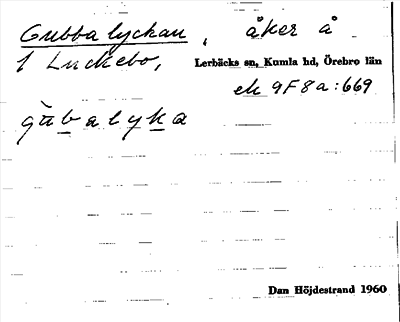 Gubbalyckan, åker å
1 Luckebo, Lerbäcks sn, Kumla hd, Örebro län
ek 9F8a:669
gu̇balyka
Dan Höjdestrand 1960